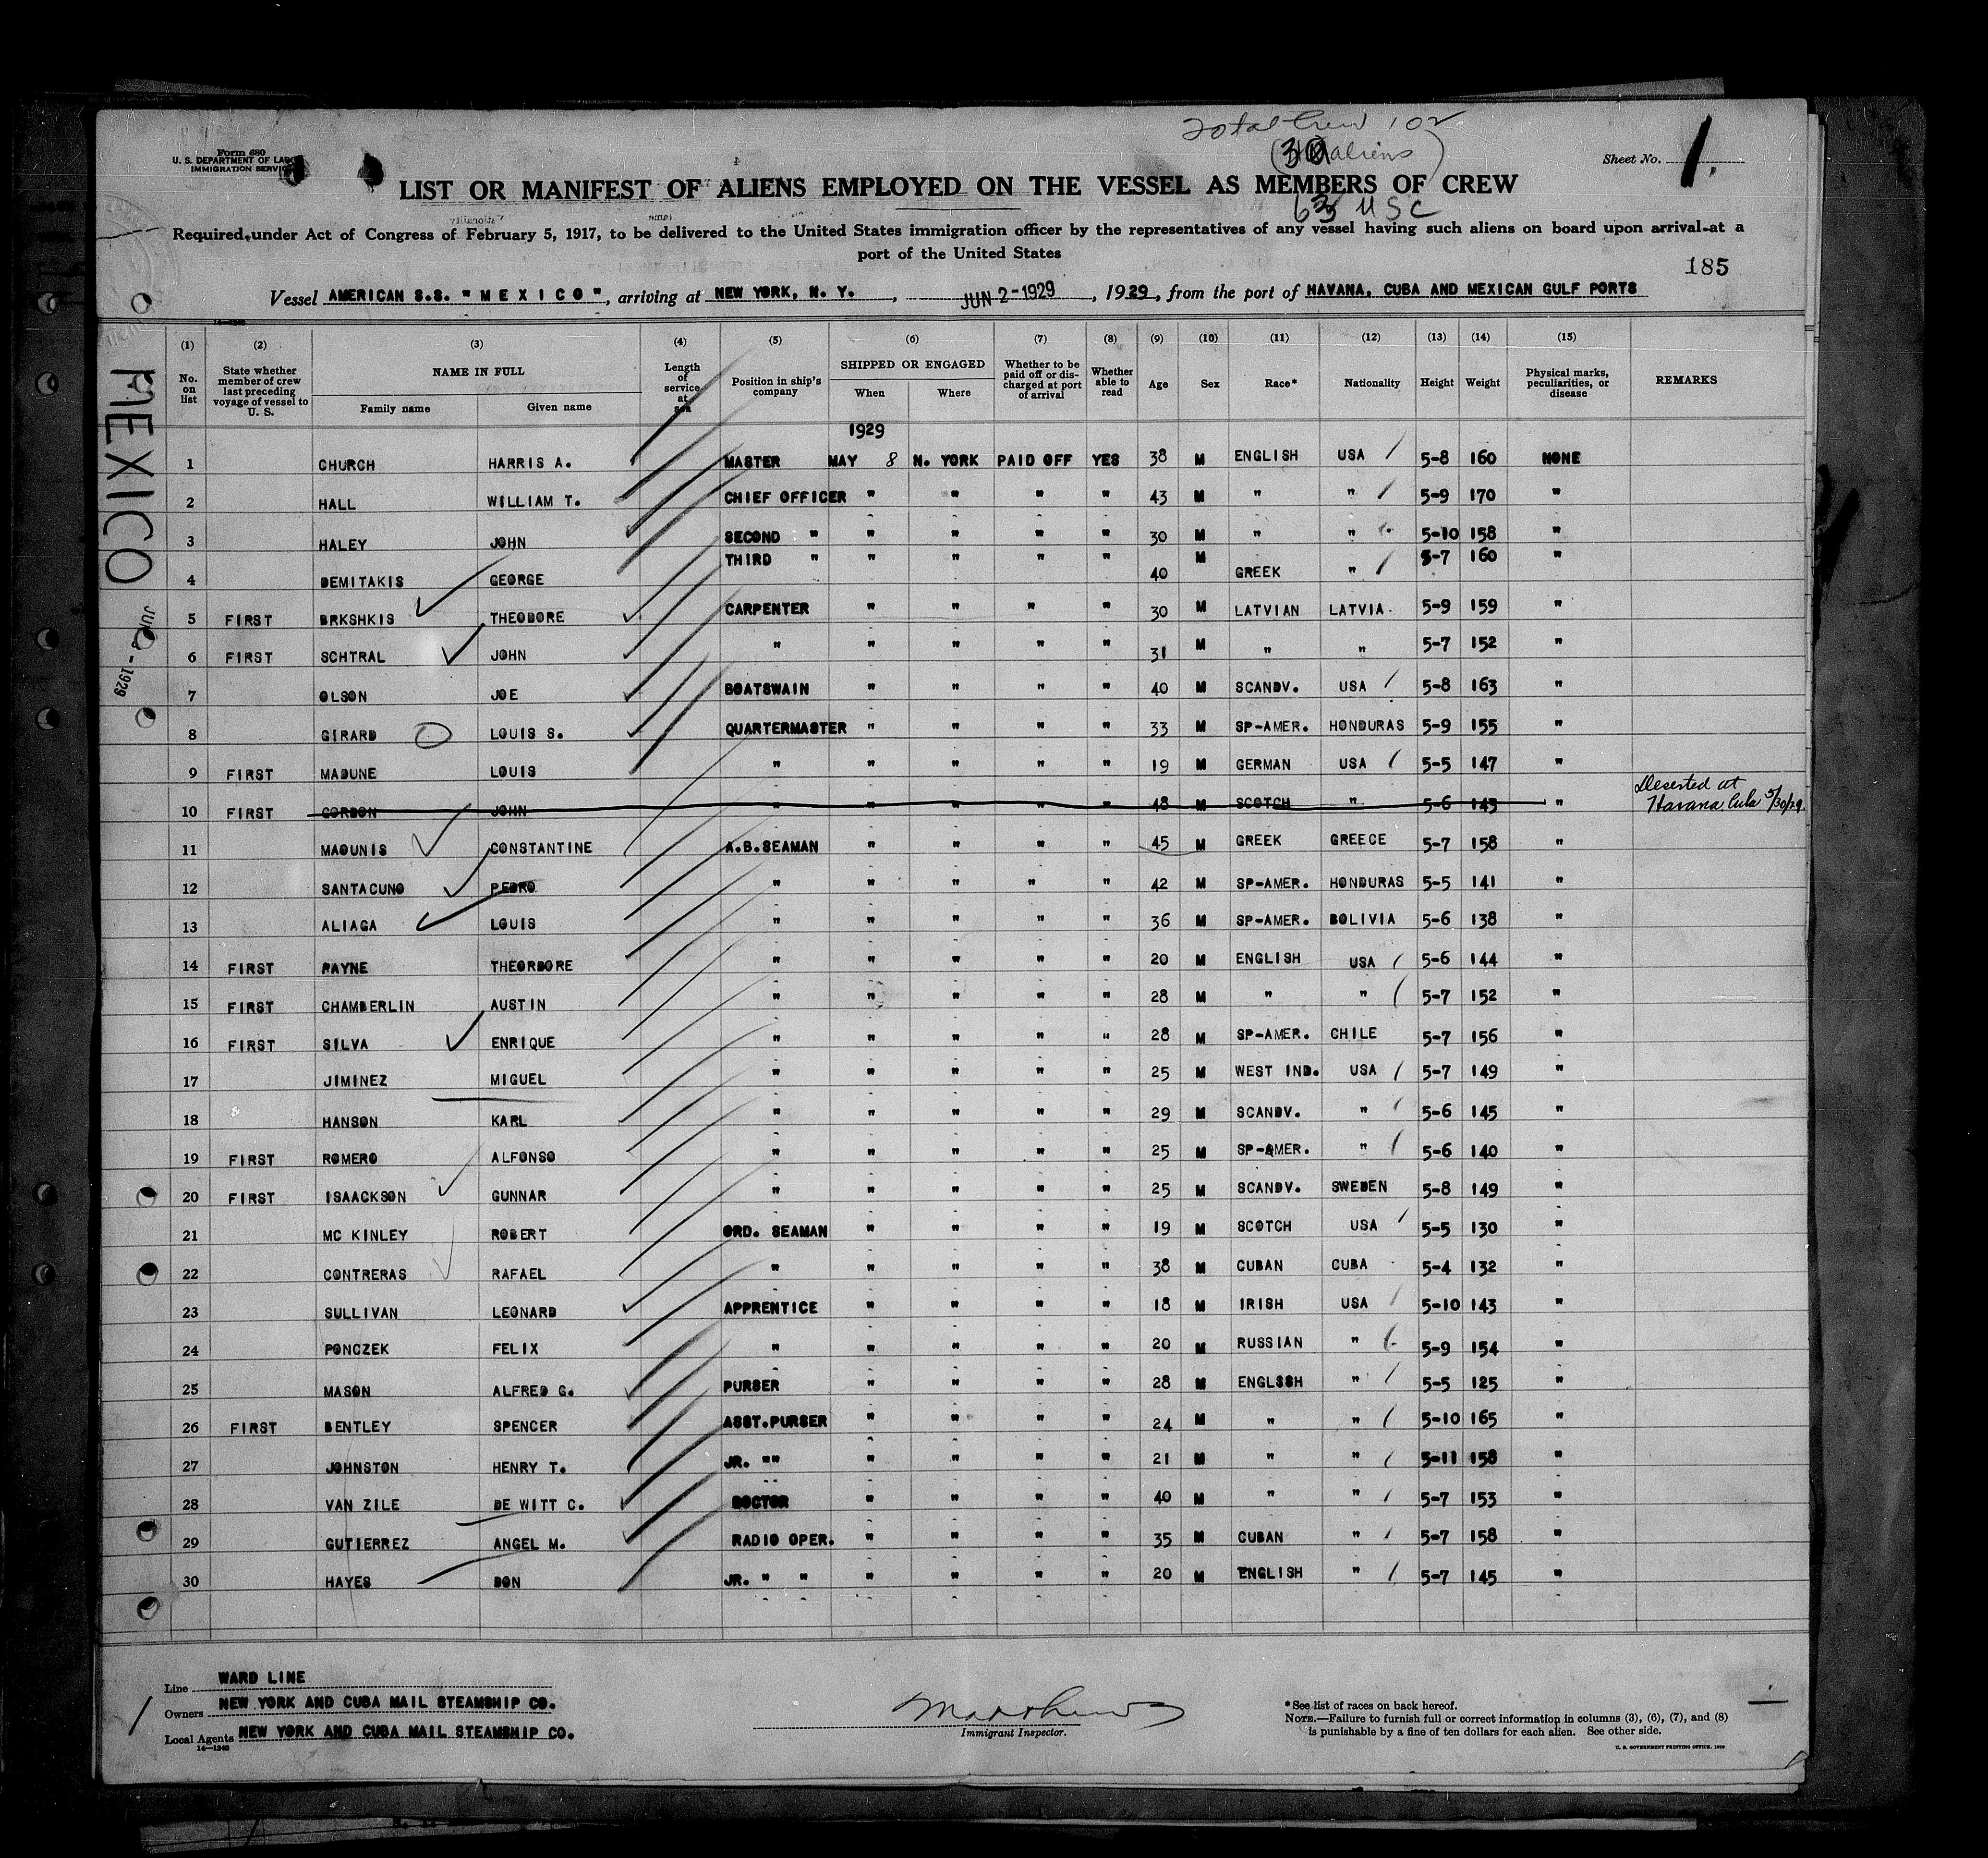 Total Crew 102
aliens
63 USC
Form 680
U. S. DEPARTMENT OF LABOR
IMMIGRATION SERVICE
Sheet No. 1.
LIST OR MANIFEST OF ALIENS EMPLOYED ON THE VESSEL AS MEMBERS OF CREW
Required under Act of Congress of February 5, 1917, to be delivered to the United States immigration officer by the representatives of any vessel having such aliens on board upon arrival at a
port of the United States
185
Vessel AMERICAN S.S. "MEXICO", arriving at NEW YORK, N. Y., JUN 2-1929, 1929, from the port of HAVANA, CUBA AND MEXICAN GULF PORTS
14-1240
MEXICO
JUN - 1929
(1) (2) (3) (4) (5) (6) (7) (8) (9) (10) (11) (12) (13) (14) (15)
No. on list State whether member of crew last preceding voyage of vessel to U. S. NAME IN FULL Family name Given name Length of service at sea Position in ship's company SHIPPED OR ENGAGED When Where Whether to be paid off or discharged at port of arrival Whether able to read Age Sex Race* Nationality Height Weight Physical marks, peculiarities, or disease REMARKS
1929
1 CHURCH HARRIS A. MASTER MAY 8 N. YORK PAID OFF YES 38 M ENGLISH USA 5-8 160 NONE
2 HALL WILLIAM T. CHIEF OFFICER " " " " 43 M " " 5-9 170 "
3 HALEY JOHN SECOND " " " " " 30 M " " 5-10 158 "
4 DEMITAKIS GEORGE THIRD " " " " " 40 M GREEK " 5-7 160 "
5 FIRST BRKSHKIS THEODORE CARPENTER " " " " 30 M LATVIAN LATVIA 5-9 159 "
6 FIRST SCHTRAL JOHN " " " " " 31 M " " 5-7 152 "
7 OLSON JOE BOATSWAIN " " " " 40 M SCANDV. USA 5-8 163 "
8 GIRARD LOUIS S. QUARTERMASTER " " " " 33 M SP-AMER. HONDURAS 5-9 155 "
9 FIRST MADUNE LOUIS " " " " " 19 M GERMAN USA 5-5 147 "
10 FIRST GORDON JOHN " " " " " 48 M SCOTCH " 5-6 143 " Deserted at Havana, Cuba 5/30/29.
11 MAOUNIS CONSTANTINE A.B.SEAMAN " " " " 45 M GREEK GREECE 5-7 158 "
12 SANTACUNO PEDRO " " " " " 42 M SP-AMER. HONDURAS 5-5 141 "
13 ALIAGA LOUIS " " " " " 36 M SP-AMER. BOLIVIA 5-6 138 "
14 FIRST PAYNE THEORDORE " " " " " 20 M ENGLISH USA 5-6 144 "
15 FIRST CHAMBERLIN AUSTIN " " " " " 28 M " " 5-7 152 "
16 FIRST SILVA ENRIQUE " " " " " 28 M SP-AMER. CHILE 5-7 156 "
17 JIMINEZ MIGUEL " " " " " 25 M WEST IND. USA 5-7 149 "
18 HANSON KARL " " " " " 29 M SCANDV. " 5-6 145 "
19 FIRST ROMERO ALFONSO " " " " " 25 M SP-AMER. " 5-6 140 "
20 FIRST ISAACKSON GUNNAR " " " " " 25 M SCANDV. SWEDEN 5-8 149 "
21 MC KINLEY ROBERT ORD. SEAMAN " " " " 19 M SCOTCH USA 5-5 130 "
22 CONTRERAS RAFAEL " " " " " 38 M CUBAN CUBA 5-4 132 "
23 SULLIVAN LEONARD APPRENTICE " " " " 18 M IRISH USA 5-10 143 "
24 PONCZEK FELIX " " " " " 20 M RUSSIAN " 5-9 154 "
25 MASON ALFRED G. PURSER " " " " 28 M ENGLSSH " 5-5 125 "
26 FIRST BENTLEY SPENCER ASST.PURSER " " " " 24 M " " 5-10 165 "
27 JOHNSTON HENRY T. JR. "" " " " " 21 M " " 5-11 158 "
28 VAN ZILE DE WITT C. DOCTOR " " " " 40 M " " 5-7 153 "
29 GUTIERREZ ANGEL M. RADIO OPER. " " " " 35 M CUBAN " 5-7 158 "
30 HAYES DON JR. " " " " " " 20 M ENGLISH " 5-7 145 "
Line WARD LINE
Owners NEW YORK AND CUBA MAIL STEAMSHIP CO.
Local Agents NEW YORK AND CUBA MAIL STEAMSHIP CO.
14-1240
Matthews
Immigrant Inspector.
*See list of races on back hereof.
NOTE.—Failure to furnish full or correct information in columns (3), (6), (7), and (8)
is punishable by a fine of ten dollars for each alien. See other side.
U. S. GOVERNMENT PRINTING OFFICE